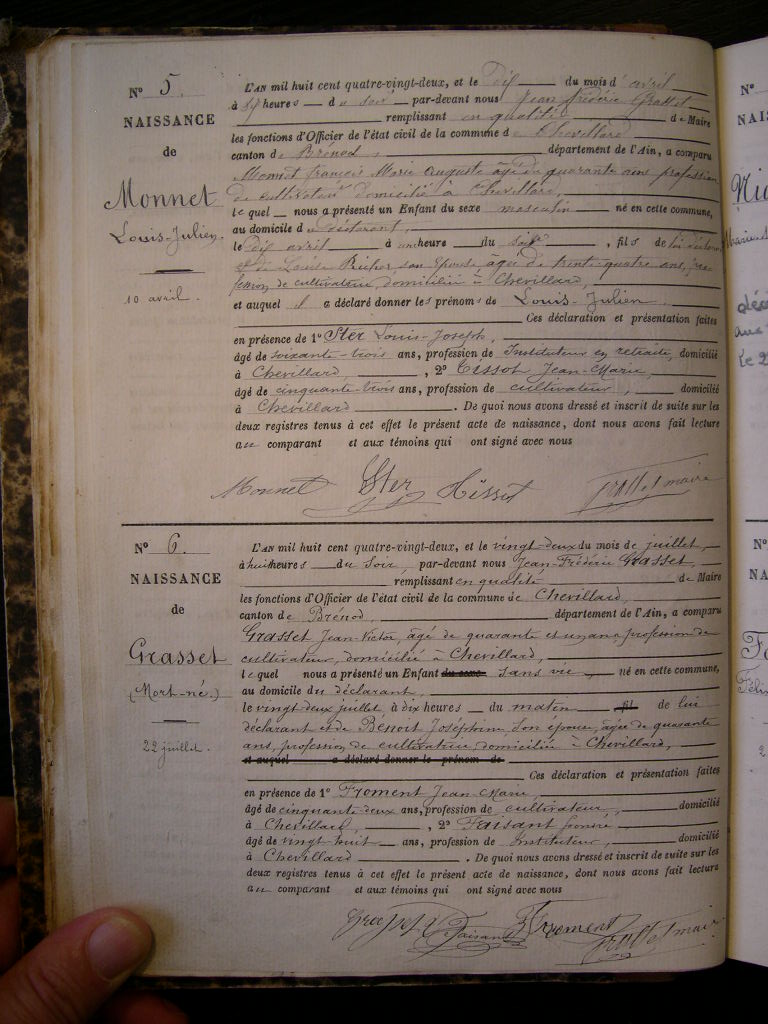 N° 5.
NAISSANCE
de
Monnet
Louis-Julien.
10 avril.
L'AN mil huit cent quatre-vingt-deux, et le Dix du mois d' avril
à heures du soir par-devant nous Jean Frédéric Grasset
remplissant en qualité de Maire
les fonctions d'Officier de l'état civil de la commune de Chevillard
canton de Brénod, département de l'Ain, a comparu
Monnet françois Marie Auguste âgé de quarante ans profession
de cultivateur domicilié à Chevillard,
lequel nous a présenté un Enfant du sexe masculin né en cette commune,
au domicile du déclarant,
le Dix avril à une heure du soir, fils de lui déclarant
et de Louise son épouse âgée de trente quatre ans, pro
fession de cultivateur, domiciliée à Chevillard,
et auquel il a déclaré donner les prénoms de Louis-Julien
Ces déclaration et présentation faites
en présence de 1° Ster Louis-Joseph,
âgé de soixante-trois ans, profession de Instituteur en retraite, domicilié
à Chevillard, 2° Tissot Jean-Marie,
âgé de cinquante-trois ans, profession de cultivateur, domicilié
à Chevillard. De quoi nous avons dressé et inscrit de suite sur les
deux registres tenus à cet effet le présent acte de naissance, dont nous avons fait lecture
au comparant et aux témoins qui ont signé avec nous
Monnet Ster Tissot Grasset maire
N° 6.
NAISSANCE
de
Grasset
(Mort-né.)
22 juillet.
L'AN mil huit cent quatre-vingt-deux, et le vingt-deux du mois de juillet,
à huit heures du Soir, par-devant nous Jean-Frédéric Grasset,
remplissant en qualité de Maire
les fonctions d'Officier de l'état civil de la commune de Chevillard,
canton de Brénod, département de l'Ain, a comparu
Grasset Jean-Victor, âgé de quarante et un ans, profession de
cultivateur, domicilié à Chevillard,
lequel nous a présenté un Enfant du sexe sans vie, né en cette commune,
au domicile du déclarant,
le vingt deux juillet à dix heures du maton fil de lui
déclarant et de Bénoit Joséphine, son épouse, âgée de quarante
ans, profession de cultivateur domiciliée à Chevillard,
et auquel a déclaré donner le prénom de
Ces déclaration et présentation faites
en présence de 1° Froment Jean-Marie,
âgé de cinquante-deux ans, profession de cultivateur, domicilié
à Chevillard, 2° Faisant
âgé de vingt-huit ans, profession de Instituteur, domicilié
à Chevillard. De quoi nous avons dressé et inscrit de suite sur les
deux registres tenus à cet effet le présent acte de naissance, dont nous avons fait lecture
au comparant et aux témoins qui ont signé avec nous
Grasset Faisant Froment Grasset maire